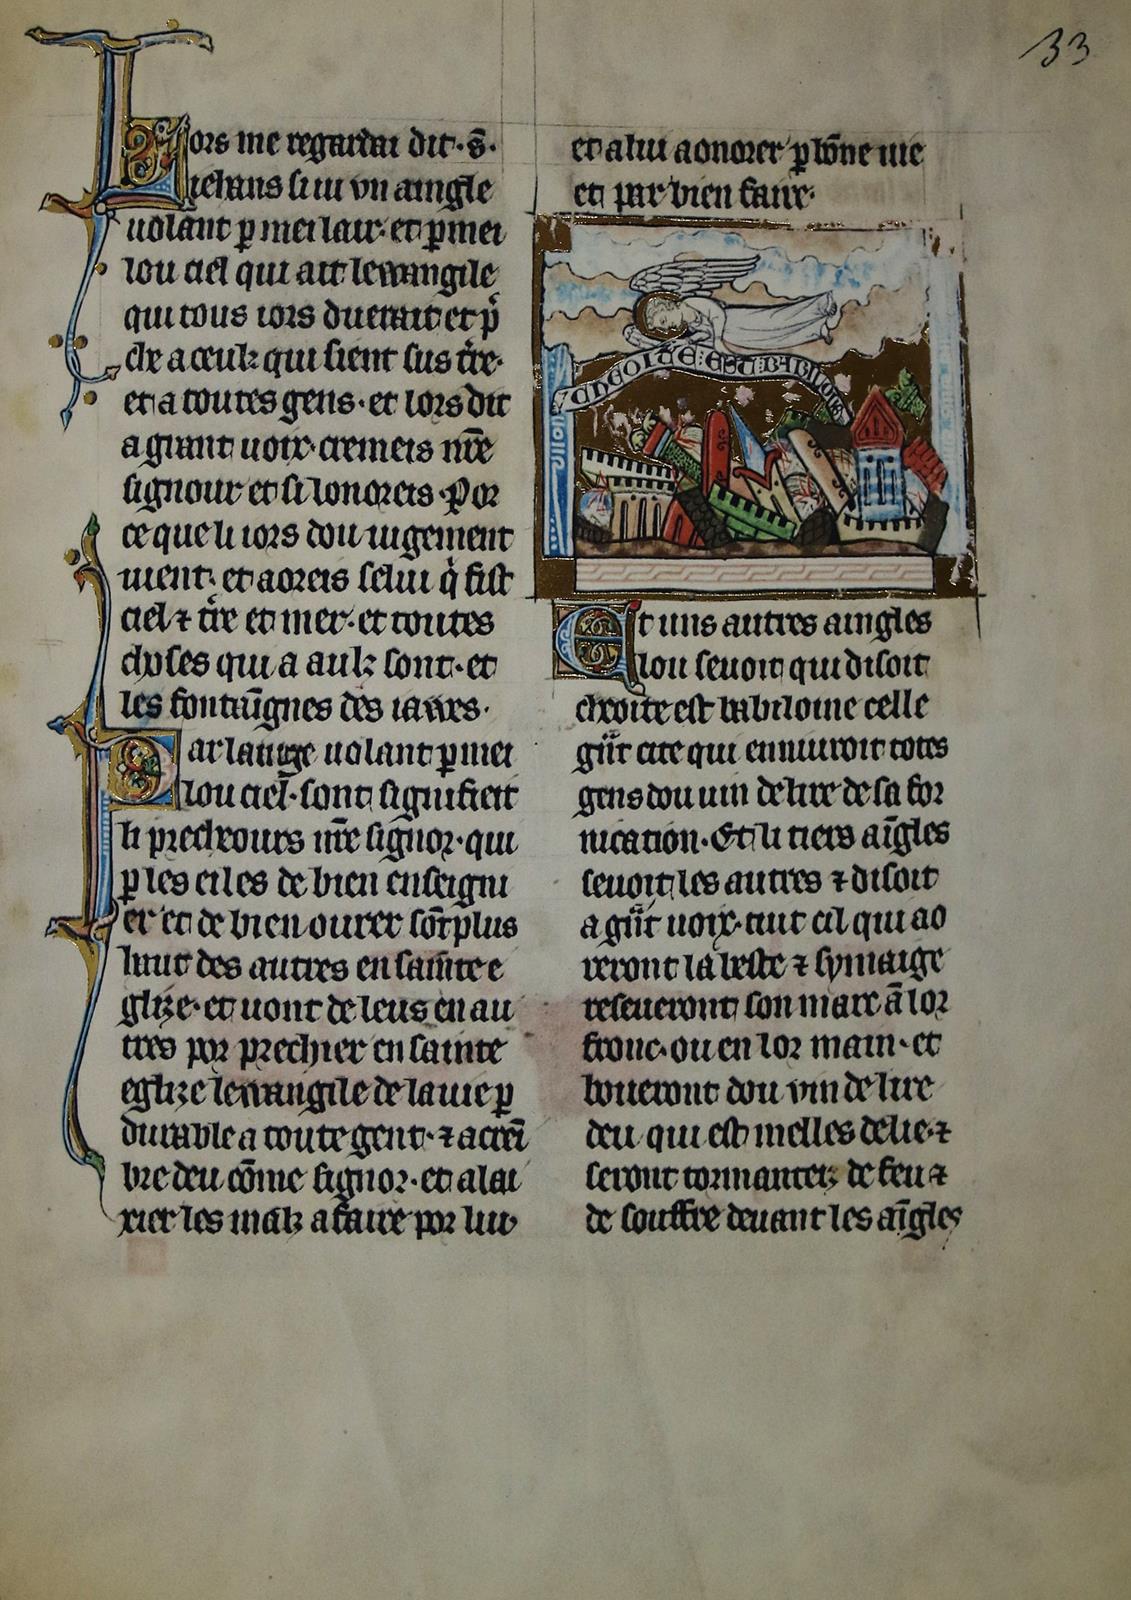 33
Lors me regardai dit · s̄ ·
iehans si ui vn aingle
uolant p̱ mei lair · et p̱ mei
lou ciel qui ait lewangile
qui tous iors duerrait et p̄
chr a ceulz qui sient sus t̄re ·
et a toutes gens · et lors dit
a grant uoix · cremeis n̄re
signour et si lonoreis · Por
ce que li iors dou iugement
uient · et aoreis selui q̇ fist
ciel ⁊ t̄re et mer · et toutes
choses qui a aulz sont · et
les fontaīgnes des iawes ·
Par lange uolant p̱ mei
lou ciel · sont signifieit
li prechours n̄re signor · qui
p̱ les eiles de bien enseigni
er et de bien ourer sōt plus
haut des autres en sainte e
glize · et uont de leus en au
tres por prechier en sainte
eglize lewangile de la uie p̱
durable a toute gent · ⁊ a crēi
bre deu cōme signor · et a lai
xier les malz a faire por lui ·
et a lui a onorer p̱ bōne uie
et par bien faire ·
CHEOITE : EST : BABILONE
Et uns autres aingles
lou seuoit qui disoit
cheoite est babiloine celle
grāt cite qui enniuroit totes
gens dou uin de lire de sa for
nication · Et li tiers aīgles
seuoit les autres ⁊ disoit
a grāt uoix · tuit cil qui ao
reront la beste ⁊ symaige
reseueront son marc ā lor
fronc · ou en lor main · et
boueront dou vin de lire
deu qui est melles de lie · ⁊
seront tormanteiz de feu ⁊
de souffre deuant les aīgles